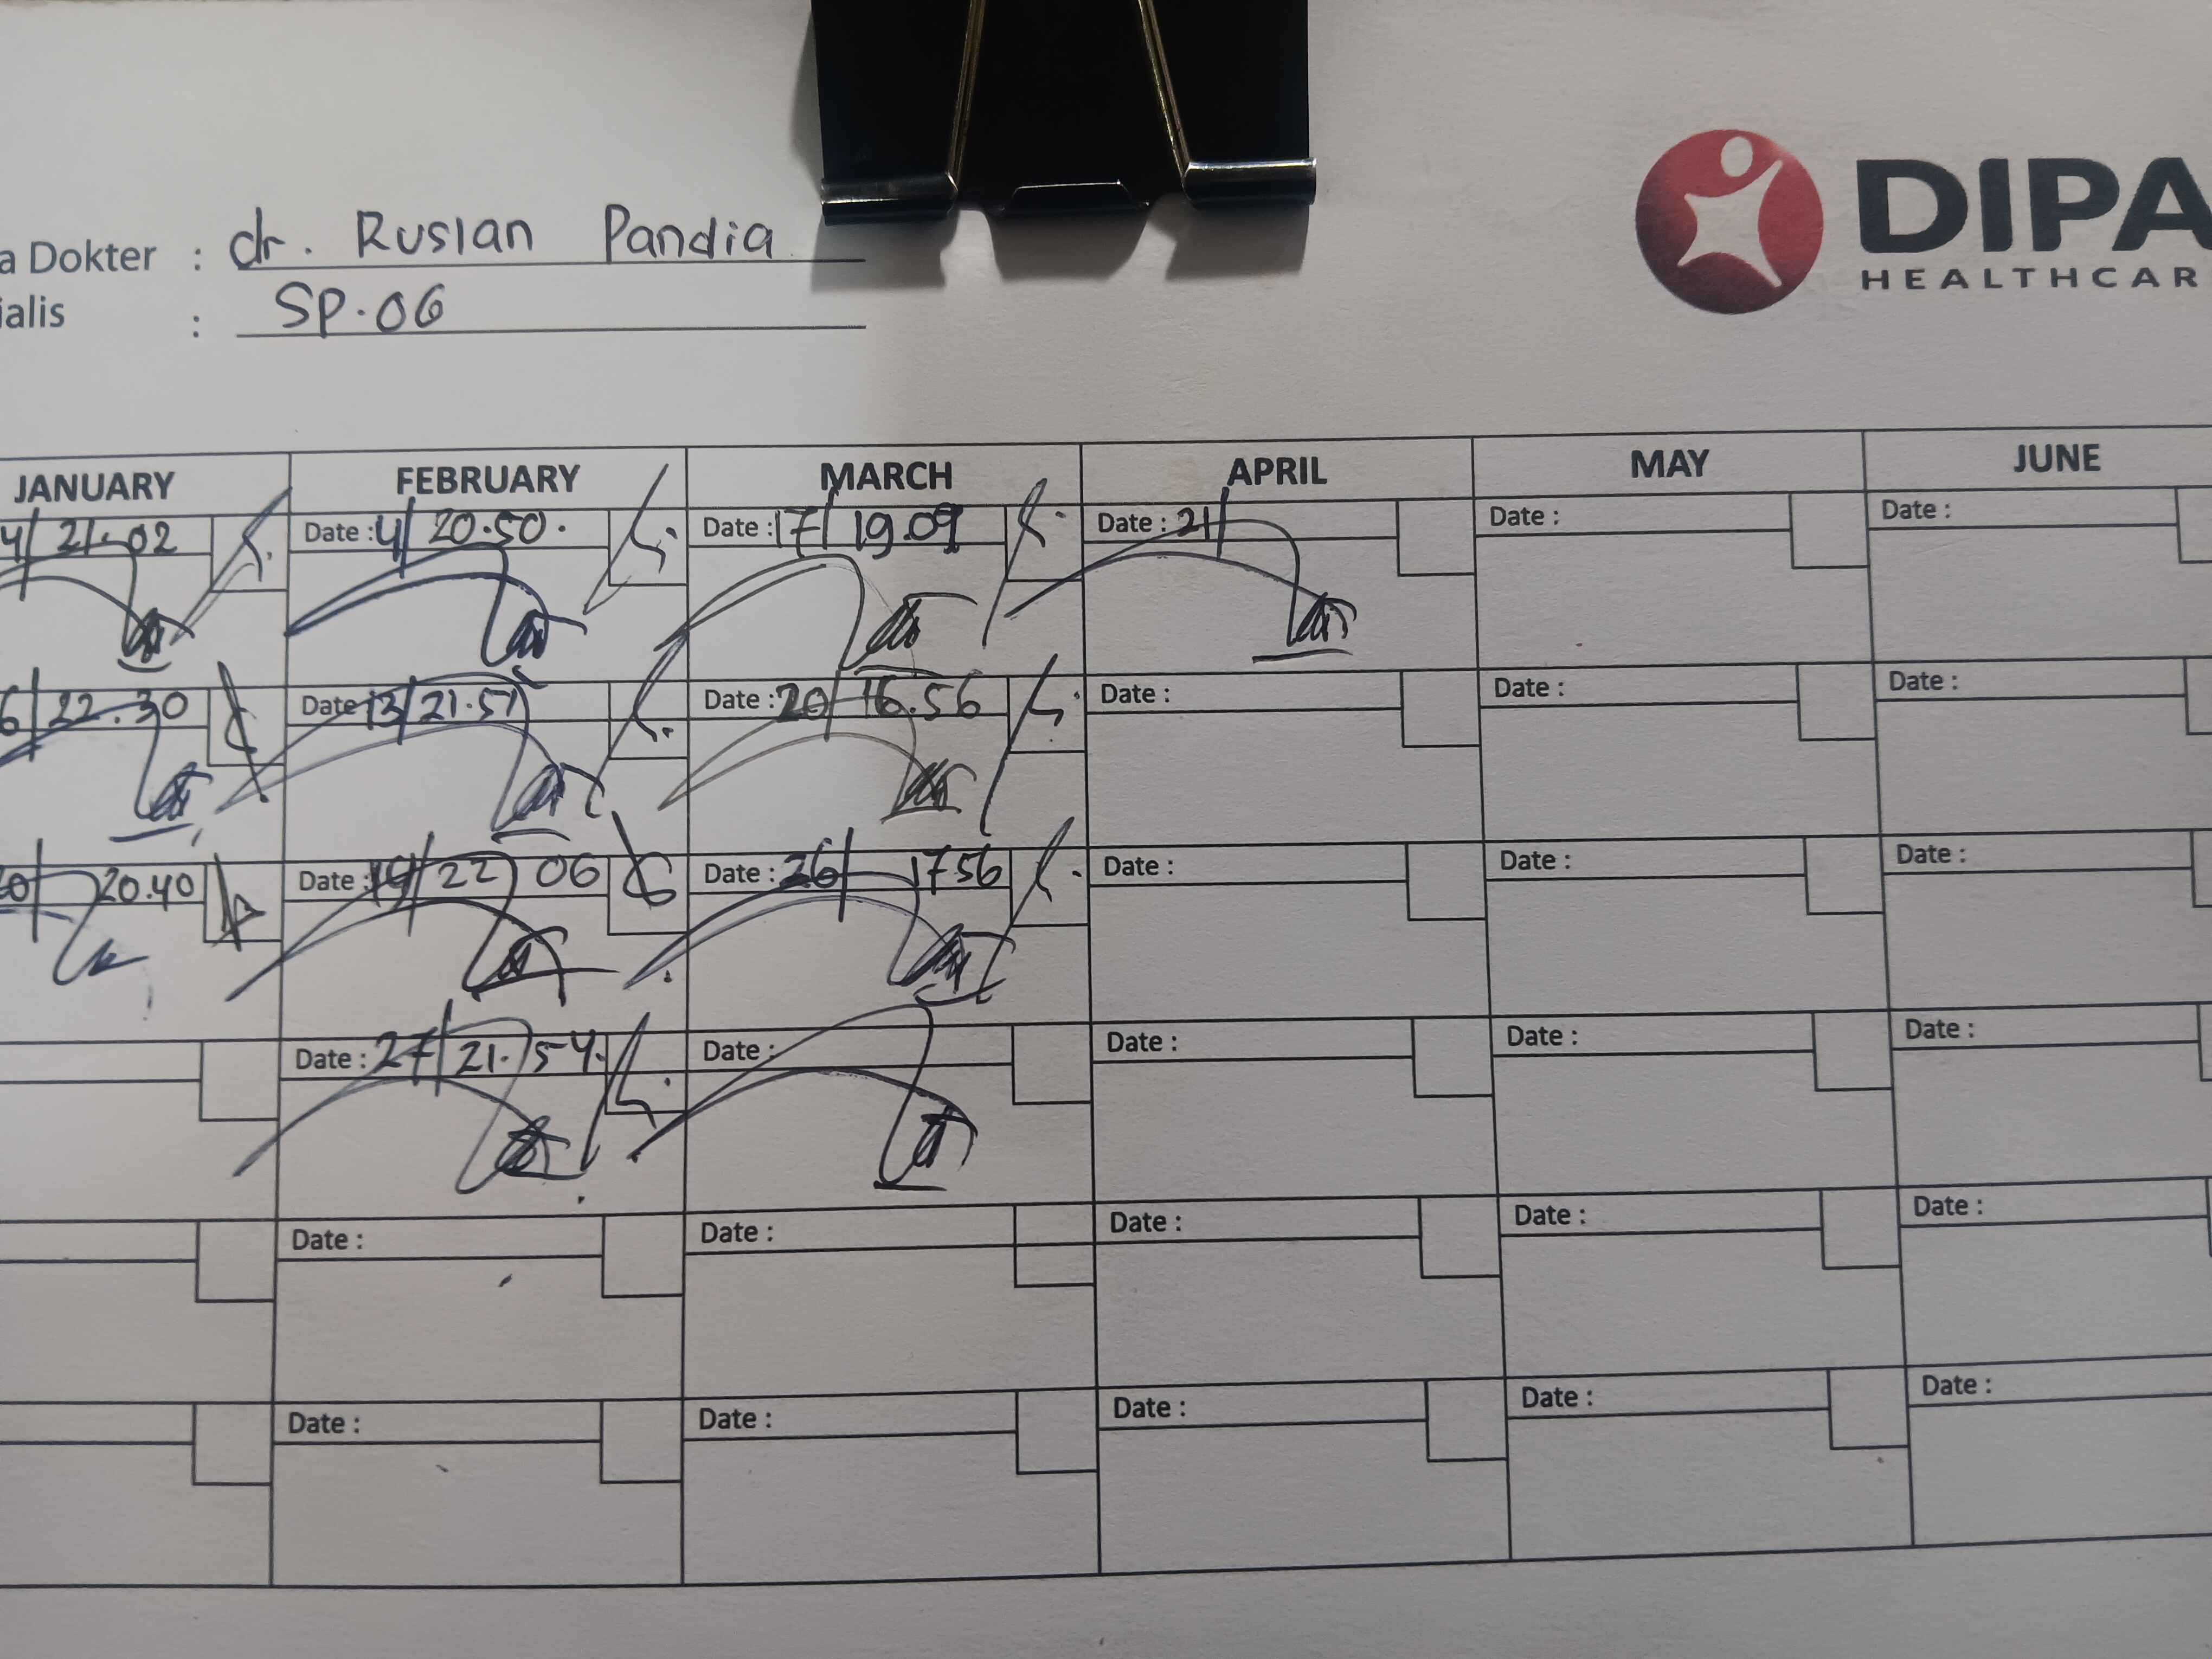 DIPA
HEALTHCAR
a Dokter : dr. Ruslan Pandia
ialis : SP.OG
JANUARY FEBRUARY MARCH APRIL MAY JUNE
4/ 21.02 Date : 4/ 20.50. Date : 17/ 19.09 Date : 21/ Date : Date :
6/ 22.30 Date : 13/ 21.51 Date : 20/ 16.56 Date : Date : Date :
20/ 20.40 Date : 19/ 22 06 Date : 26/ 17 56 Date : Date : Date :
Date : 27/ 21.54. Date : Date : Date : Date :
Date : Date : Date : Date : Date :
Date : Date : Date : Date : Date :